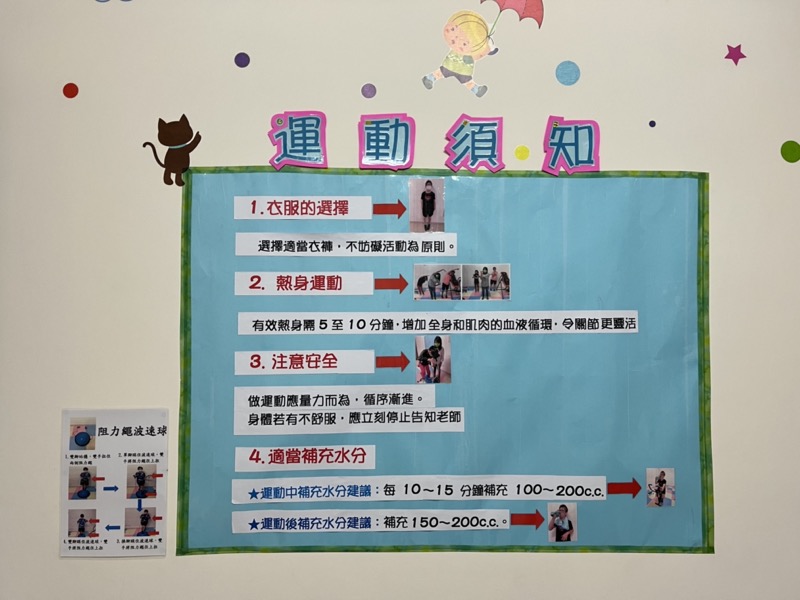 運動須知
1.衣服的選擇
選擇適當衣褲,不妨礙活動為原則。
2. 熱身運動
有效熱身需5至10分鐘,增加全身和肌肉的血液循環,令關節更靈活
3. 注意安全
做運動應量力而為,循序漸進。
身體若有不舒服,應立刻停止告知老師
4.適當補充水分
★運動中補充水分建議:每 10～15 分鐘補充 100～200c.c.
★運動後補充水分建議:補充150～200c.c.。
阻力繩波速球